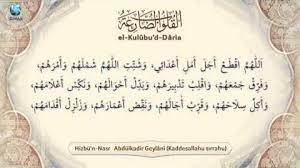 القلوب الضارعة
el-Kulûbu'd-Dâria
اَللّٰهُمَّ اقْطَعْ أَجَلَ أَمَلِ أَعْدَائِي، وَشَتِّتِ اللّٰهُمَّ شَمْلَهُمْ وَأَمْرَهُمْ،
وَفَرِّقْ جَمْعَهُمْ، وَاقْلِبْ تَدْبِيرَهُمْ، وَبَدِّلْ أَحْوَالَهُمْ، وَنَكِّسْ أَعْلَامَهُمْ،
وَأَكِلَّ سِلَاحَهُمْ، وَقَرِّبْ آجَالَهُمْ، وَنَقِّصْ أَعْمَارَهُمْ، وَزَلْزِلْ أَقْدَامَهُمْ،
Hizbü'n-Nasr Abdülkadir Geylânî (Kaddesallahu sırrahu)